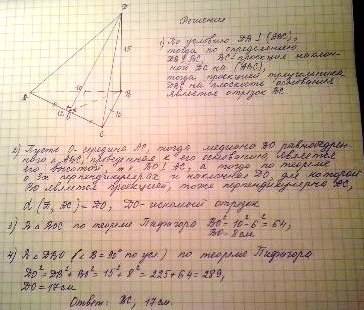 Решение
1) По условию DB ⊥ (ABC),
тогда по определению
DB ⊥ BC, BC - проекция наклон-
ной DC на (ABC),
тогда проекцией треугольника
DBC на плоскость основания
является отрезок BC.
D
15
A
10
B
10
12
C
2) Пусть O - середина AC, тогда медиана BO равнобедрен-
ного △ ABC, проведенная к его основанию, является
его высотой, т.е. BO ⊥ AC, а тогда по теореме
о 3х перпендикулярах и наклонная DO, для которой
BO является проекцией, тоже перпендикулярна AC,
d (D, AC) = DO, DO - искомый отрезок
3) В △ BOC по теореме Пифагора BO² = 10² - 6² = 64,
BO = 8 см
4) В △ DBO (∠B = 90° по усл.) по теореме Пифагора
DO² = DB² + BO² = 15² + 8² = 225 + 64 = 289,
DO = 17 см
Ответ: BC, 17 см.